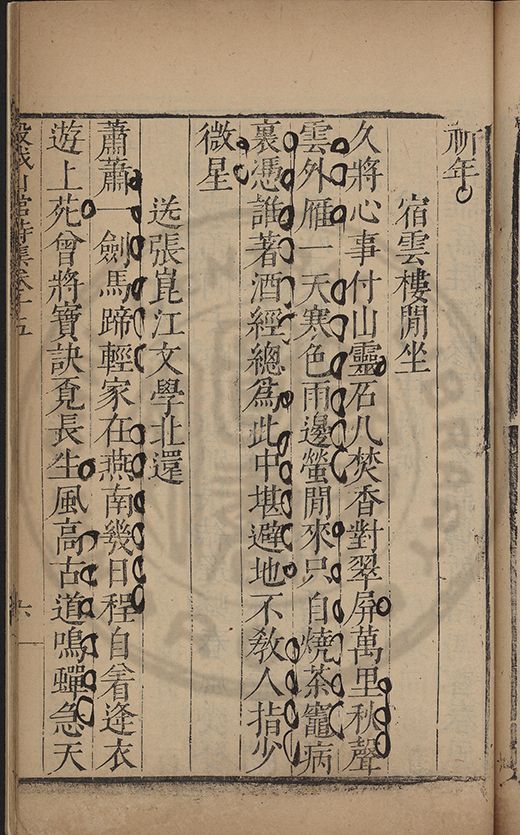 祈年
宿雲樓閒坐
久將心事付山靈石几焚香對翠屏萬里秋聲
雲外雁一天寒色雨邊螢閒來只自燒茶竈病
裏憑誰著酒經總爲此中堪避地不教人指少
微星
送張崑江文學北還
蕭蕭一劍馬蹄輕家在燕南幾日程自着逢衣
遊上苑曾將寶訣覓長生風高古道鳴蟬急天
山館詩集卷十五
六